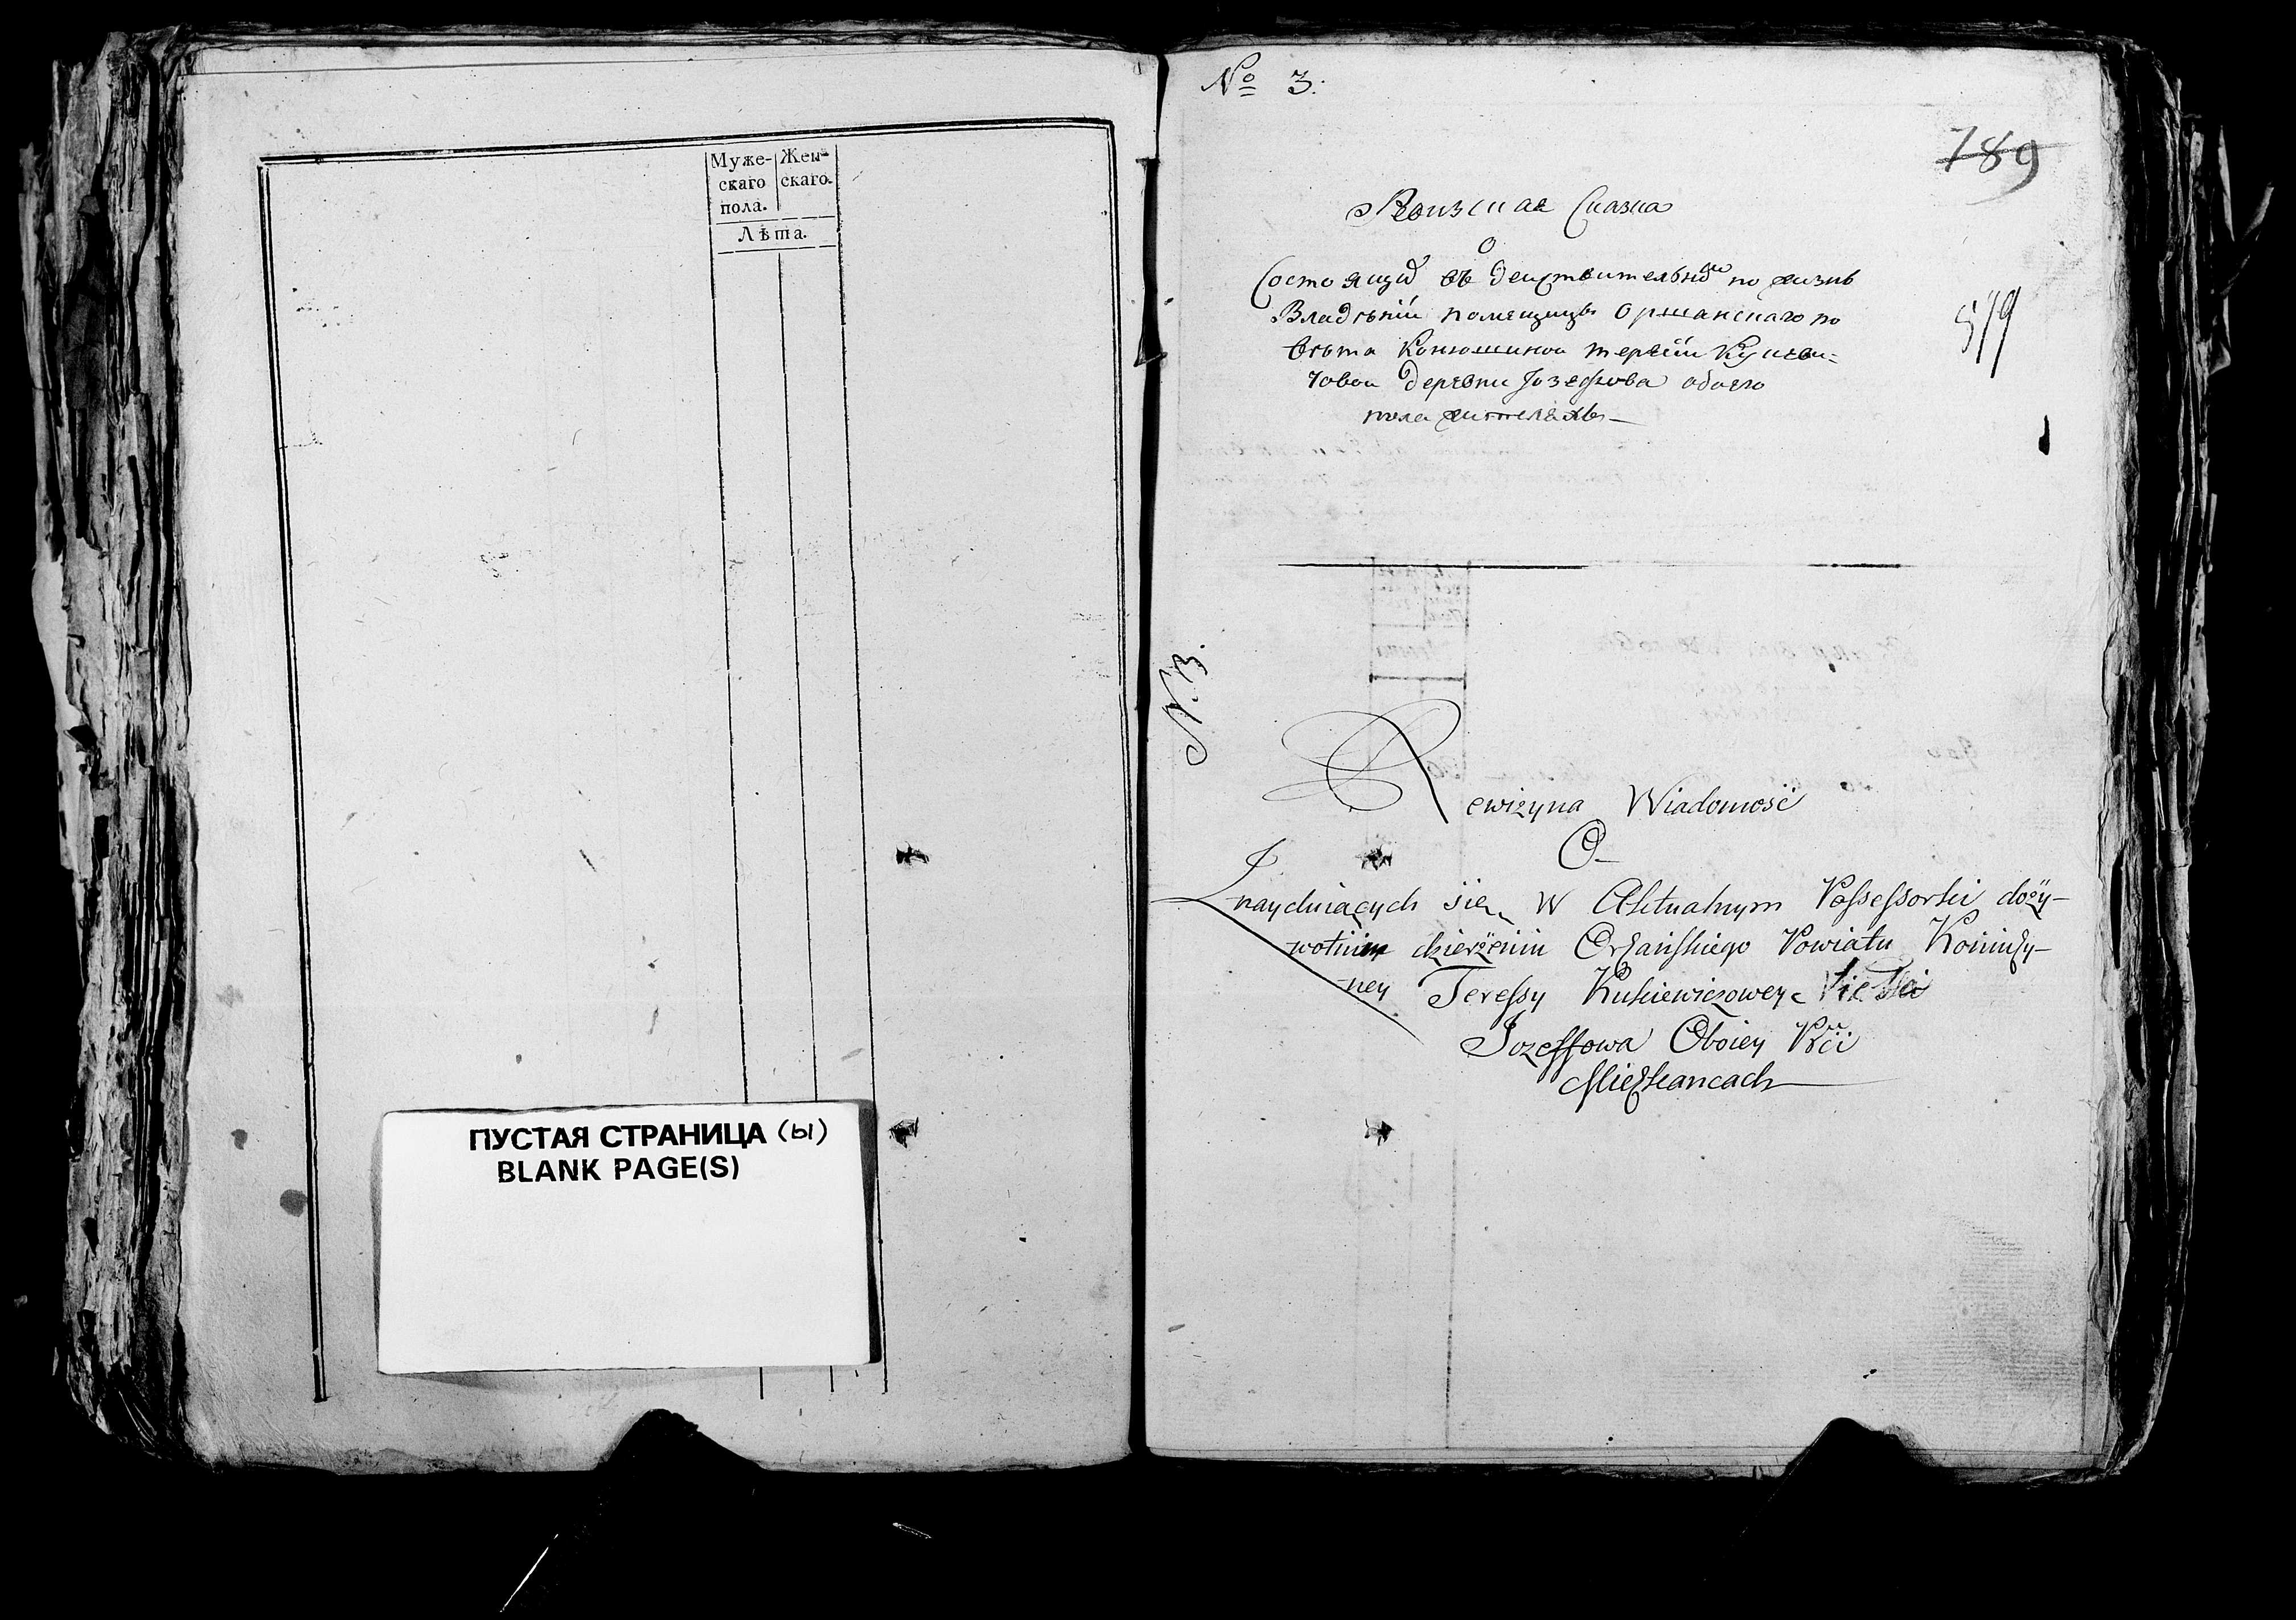 Муже- Жен-
скаго скаго.
пола.
Лѣта.
ПУСТАЯ СТРАНИЦА (ы)
BLANK PAGE(S)
№ 3.
789
Ревизская Сказка
О
Состоящих въ действительном по жизнь
Владѣнїи помещицы Оршанскаго по
вѣта Конюшиной терезїи Куцеви-
човои деревни Іозефова обоего
пола жителяхъ
579
N. 3.
Rewizyna Wiadomość
O
Znayduiących się w Aktualnym Possessorki doży-
wotnim dzierżeniu Orszańskiego Powiatu Koniuszy-
ney Teressy Kuciewiczowey
Jozeffowa Oboiey Płci
Mieszkancach